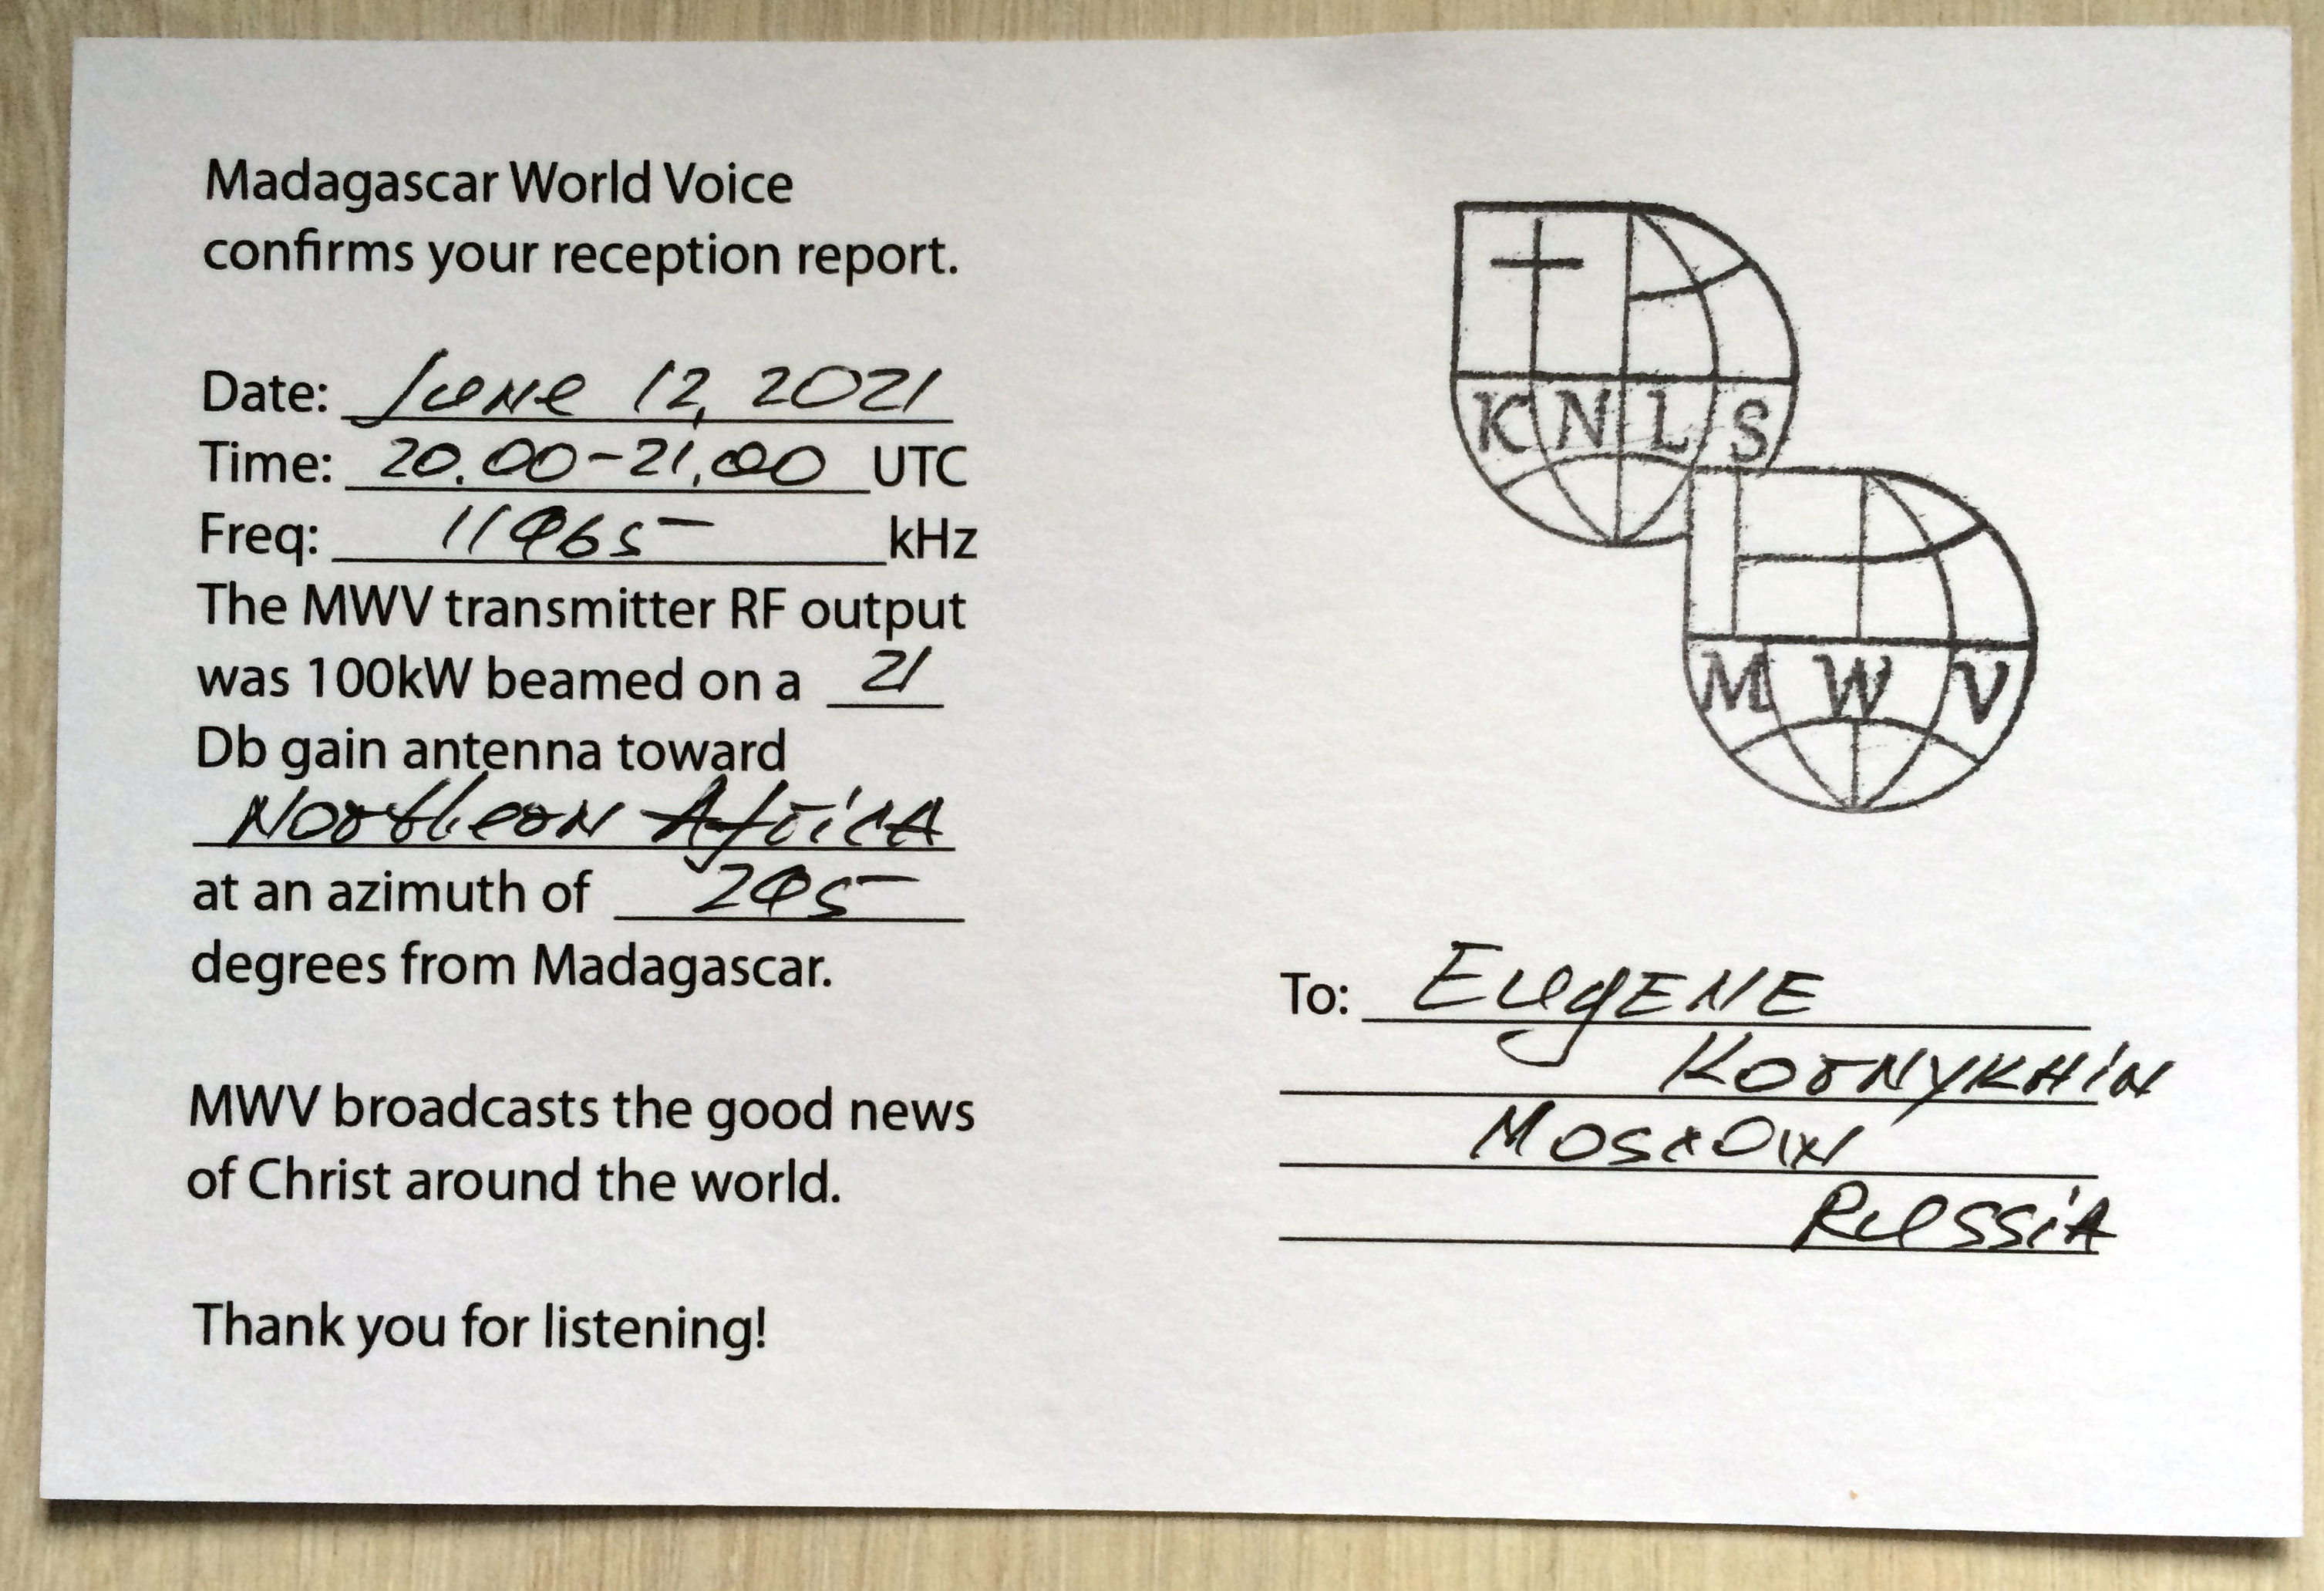 Madagascar World Voice
confirms your reception report.
Date: June 12, 2021
Time: 20.00-21.00 UTC
Freq: 11965 kHz
The MWV transmitter RF output
was 100kW beamed on a 21
Db gain antenna toward
Northern Africa
at an azimuth of 295
degrees from Madagascar.
MWV broadcasts the good news
of Christ around the world.
Thank you for listening!
KNLS
MWV
To: EUgENE
KorNYKHiN
Moscow
RUSSiA